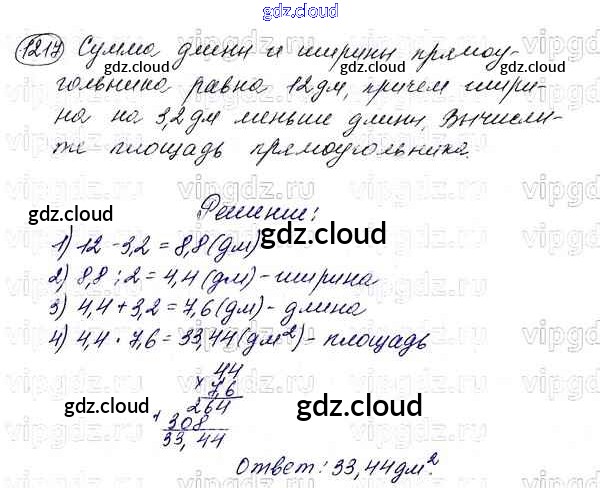 gdz.cloud
1217 Сумма длины и ширины прямоу-
гольника равна 12 дм, причем шири-
на на 3,2 дм меньше длины. Вычисли-
те площадь прямоугольника.
Решение:
1) 12 - 3,2 = 8,8 (дм)
2) 8,8 : 2 = 4,4 (дм) - ширина
3) 4,4 + 3,2 = 7,6 (дм) - длина
4) 4,4 · 7,6 = 33,44 (дм²) - площадь
4,4
× 7,6
264
+ 308
33,44
Ответ: 33,44 дм².
gdz.cloud
gdz.cloud
gdz.cloud
gdz.cloud
gdz.cloud
gdz.cloud
gdz.cloud
gdz.cloud
vipgdz.ru